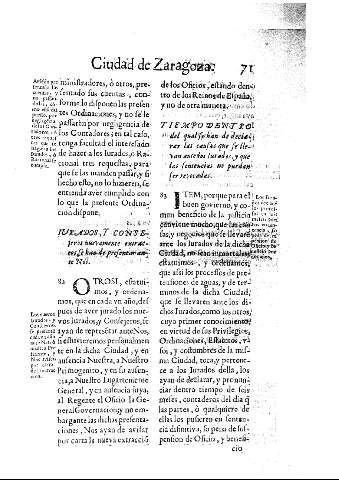 Ciudad de Zaragoza. 71
ministradores, ò otros, pre-
sentado sus cuentas, con-
forme lo disponen las presen-
tes Ordinaciones, y no se
passarán por negligencia de
los Contadores; en tal caso,
tenga facultad el interesado
de hazer a los Jurados, ò Ra-
cional tres requestas, para
que se las manden passar, y si
hecho esto, no lo hizieren, se
entienda aver cumplido con
lo que la presente Ordina-
cion dispone.
JURADOS, Y CONSE-
jeros nuevamente extrac-
tos se han de presentar an-
te Nos.
82 OTROSI, estatui-
mos, y ordena-
mos, que en cada vn año, des-
pues de aver jurado los nue-
vos Jurados, y Consejeros, se
ayan de representar ante Nos,
si estuvieremos personalmen-
te en la dicha Ciudad, y en
ausencia Nuestra, a Nuestro
Primogenito, y en su ausen-
cia, a Nuestro Lugarteniente
General, y en aufencia suya,
al Regente el Oficio la Ge-
neral Governacion; y no em-
bargante las dichas presenta-
ciones, Nos ayan de avisar
por carta la nueva extracció
de los Oficios, estando den-
tro de los Reinos de España,
y no de otra manera.
TIEMPO DENTRO
del qual se han de decla-
rar las causas que se lle-
van ante los Jurados, y que
las sentencias no puedan
ser revocadas.
83 ITEM, porque para el
buen govierno, y co-
mun beneficio de la justicia
conviene mucho, que las cau-
sas, y negocios que se llevaren
ante los Jurados de la dicha
Ciudad, no sean inmortales,
estatuimos, y ordenamos,
que assi los processos de pe-
tensiones de aguas, y de ter-
minos de la dicha Ciudad,
que se llevaren ante los di-
chos Jurados, como los otros,
cuyo primer conocimiento,
en virtud de sus Privilegios,
Ordinaciones, Estatutos, v-
sos, y costumbres de la mis-
ma Ciudad, toca, y pertene-
ce a los Jurados della, los
ayan de declarar, y pronun-
ciar dentro tiempo de seis
meses, contaderos del dia q
las partes, ò qualquiere de
ellas los pusieren en senten-
cia difinitiva, so pena de sus-
pension de Oficio, y benefi-
cio